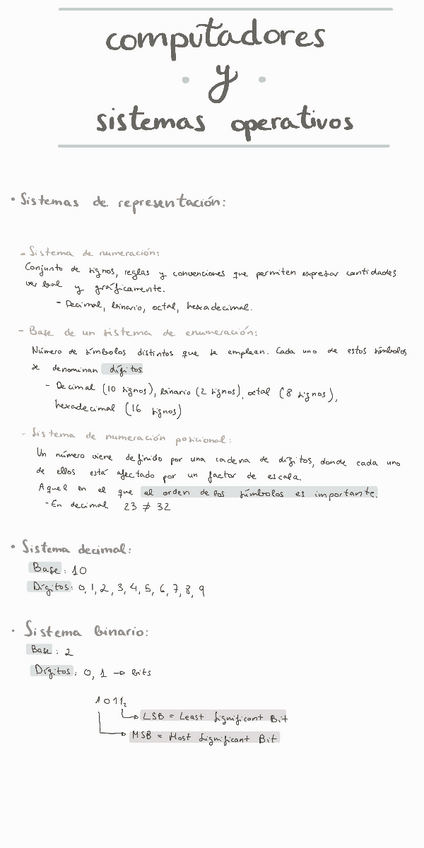 computadores
y
sistemas operativos
• Sistemas de representación:
- Sistema de numeración:
Conjunto de signos, reglas y convenciones que permiten expresar cantidades
verbal y gráficamente.
- Decimal, binario, octal, hexadecimal.
- Base de un sistema de enumeración:
Número de símbolos distintos que se emplean. Cada uno de estos símbolos
se denominan dígitos
- Decimal (10 signos), binario (2 signos), octal (8 signos),
hexadecimal (16 signos)
- Sistema de numeración posicional:
Un número viene definido por una cadena de dígitos, donde cada uno
de ellos está afectado por un factor de escala.
Aquel en el que el orden de los símbolos es importante.
- En decimal 23 ≠ 32
• Sistema decimal:
Base: 10
Dígitos: 0, 1, 2, 3, 4, 5, 6, 7, 8, 9
• Sistema binario:
Base: 2
Dígitos: 0, 1 → bits
1011₂
LSB = Least Significant Bit
MSB = Most Significant Bit